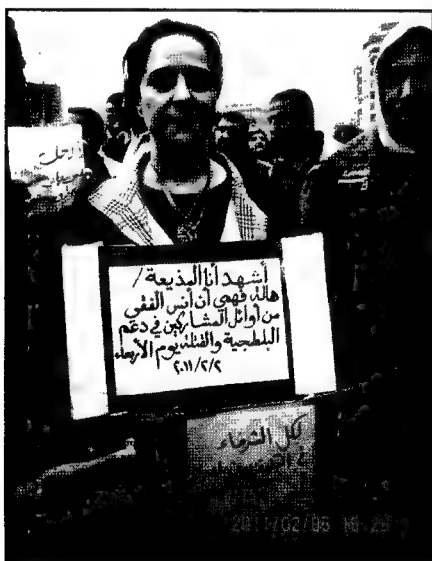 أشهد أنا المذيعة /
هالة فهمي أن أنس الفقي
من أوائل المشاركين في دعم
البلطجية والقتلة يوم الأربعاء
٢٠١١/٢/٢
لكل الشرفاء
2011/02/06